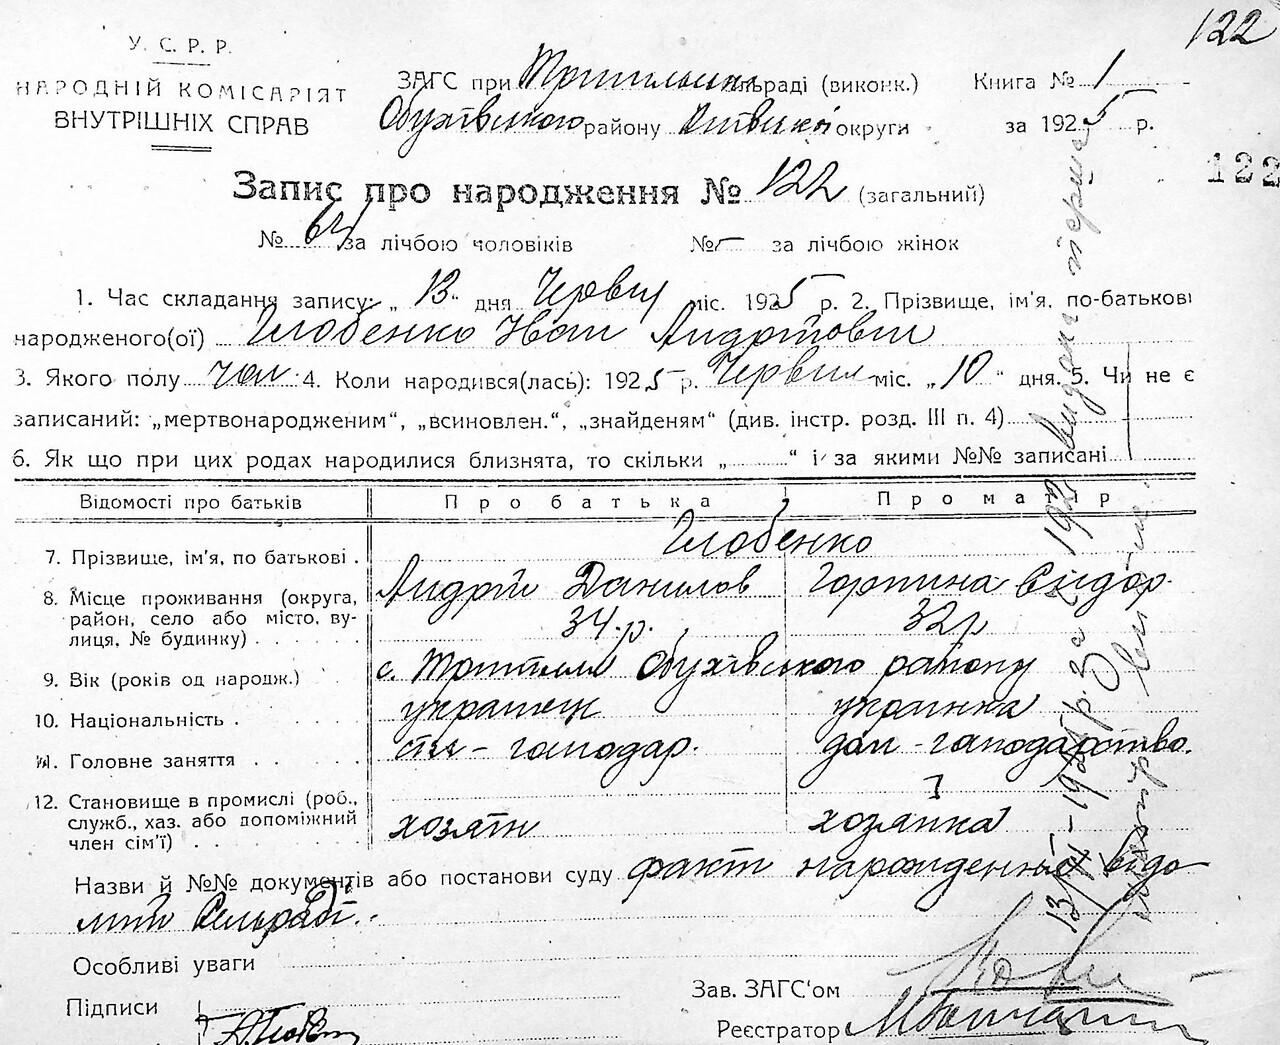 122
У. С. Р. Р.
НАРОДНІЙ КОМІСАРІЯТ
ВНУТРІШНІХ СПРАВ
ЗАГС при Трипільськ. сільраді (виконк.)
Обухівського району Київської округи
Книга № 1
за 1925 р.
122
Запис про народження № 122 (загальний)
№ 64 за лічбою чоловіків № — за лічбою жінок
1. Час складання запису: „ 13 “ дня Червня міс. 1925 р. 2. Прізвище, ім'я, по-батькові
народженого(ої) Глобенко Іван Андрійович
3. Якого полу чол. 4. Коли народився(лась): 1925 р. Червня міс. „ 10 “ дня. 5. Чи не є
записаний: „мертвонародженим“, „всиновлен.“, „знайденям“ (див. інстр. розд. III п. 4)
6. Як що при цих родах народилися близнята, то скільки „ “ і за якими №№ записані
Відомості про батьків Про батька Про матір
7. Прізвище, ім'я, по батькові . Глобенко
Андрій Данилов Горпина Сидор.
8. Місце проживання (округа,
район, село або місто, ву-
лиця, № будинку)
34 р. 32 р
9. Вік (років од народж.) с. Трипілля Обухівського району
10. Національність . українець українка
11. Головне заняття сіл - господар. дом - господарство.
12. Становище в промислі (роб.,
служб., хаз. або допоміжний
член сім'ї)
хозяїн хозяйка
Назви й №№ документів або постанови суду факт народження відо
мий Сельраді.
Особливі уваги
Підписи
Зав. ЗАГС'ом
Реєстратор